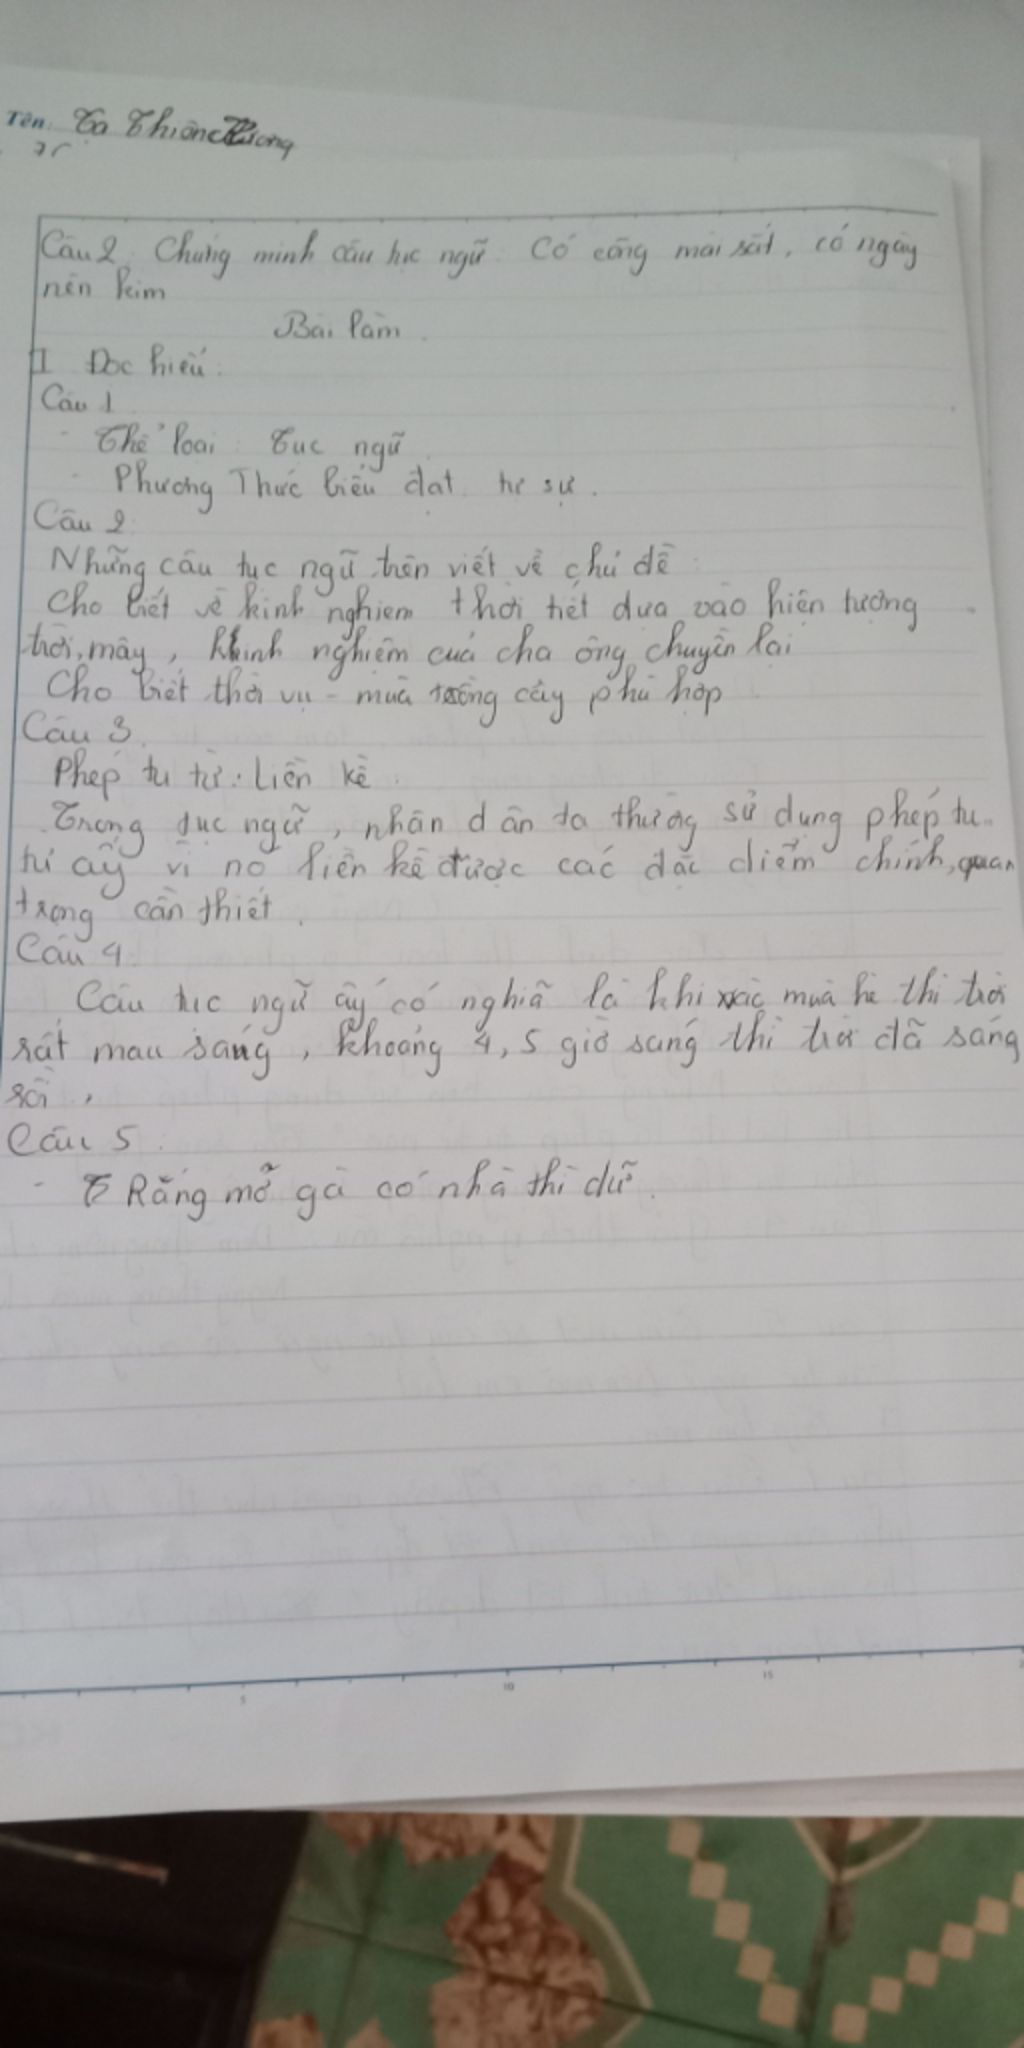 Tên: Tạ Thiên
Câu 2. Chứng minh câu tục ngữ: Có công mài sắt, có ngày
nên kim
Bài làm.
I Đọc hiểu:
Câu 1
- Thể loại: Tục ngữ.
- Phương Thức biểu đạt: tự sự.
Câu 2
Những câu tục ngữ trên viết về chủ đề:
Cho biết về kinh nghiệm thời tiết dựa vào hiện tượng
trời, mây, kinh nghiệm của cha ông chuyền lại
Cho biết thời vụ - mùa trồng cây phù hợp
Câu 3.
Phép tu từ: Liên kê.
Trong tục ngữ, nhân dân ta thường sử dụng phép tu
từ ấy vì nó liên kê được các đặc điểm chính, quan
trọng cần thiết.
Câu 4
Câu tục ngữ ấy có nghĩa là khi vào mùa hè thì trời
rất mau sáng, khoảng 4, 5 giờ sáng thì trời đã sáng
rồi,
Câu 5:
- Rắng mỡ gà có nhà thì dữ.
5
10
15